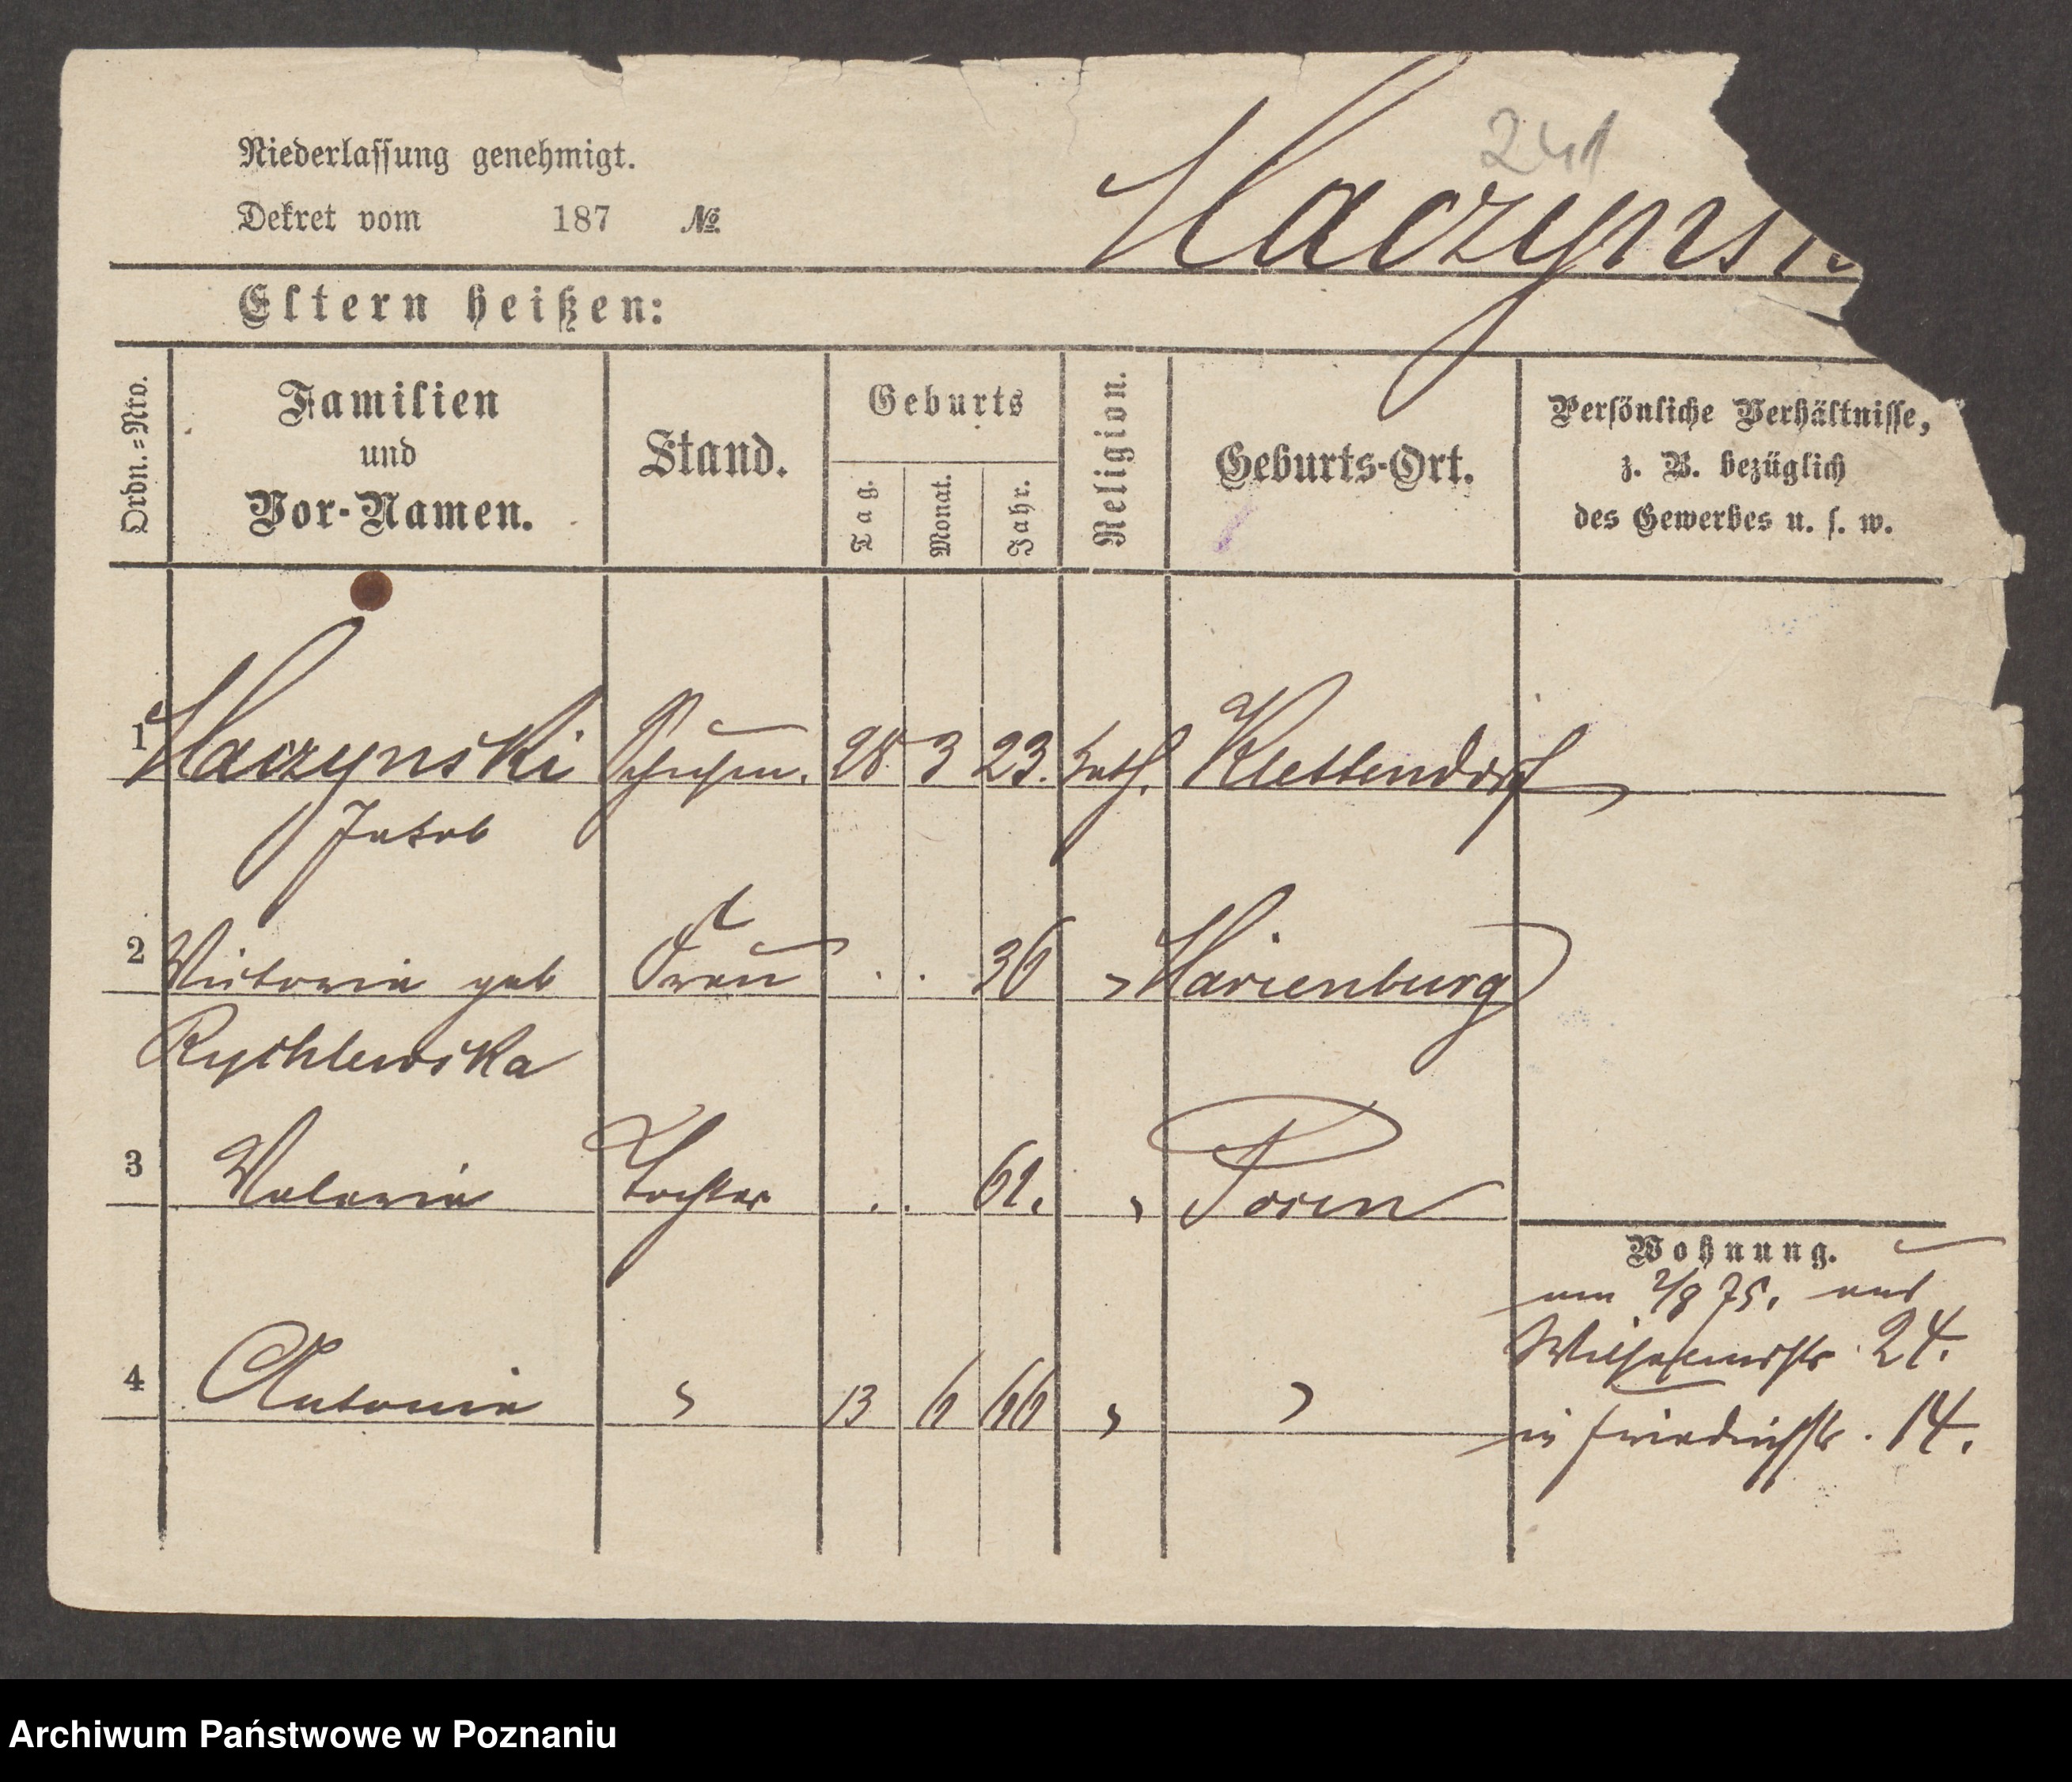 241
Niederlassung genehmigt.
Dekret vom 187 №
Maczyns
Eltern heißen:
Ordn.=Nro. Familien und Vor-Namen. Stand. Geburts Tag. Monat. Jahr. Religion. Geburts-Ort. Persönliche Verhältnisse, z. B. bezüglich des Gewerbes u. s. w.
1 Maczynski Schuhm. 28 3 23. kath. Klettendorf
Jakob
2 Victoria geb Frau . . 36 " Marienburg
Rychlewska
3 Valeria Tochter . . 61. " Posen
Wohnung.
am 2/8 75. aus
Wilhelmsstr. 24.
4 Antonia " 13 6 66 " "
in Friedrichstr. 14.
Archiwum Państwowe w Poznaniu